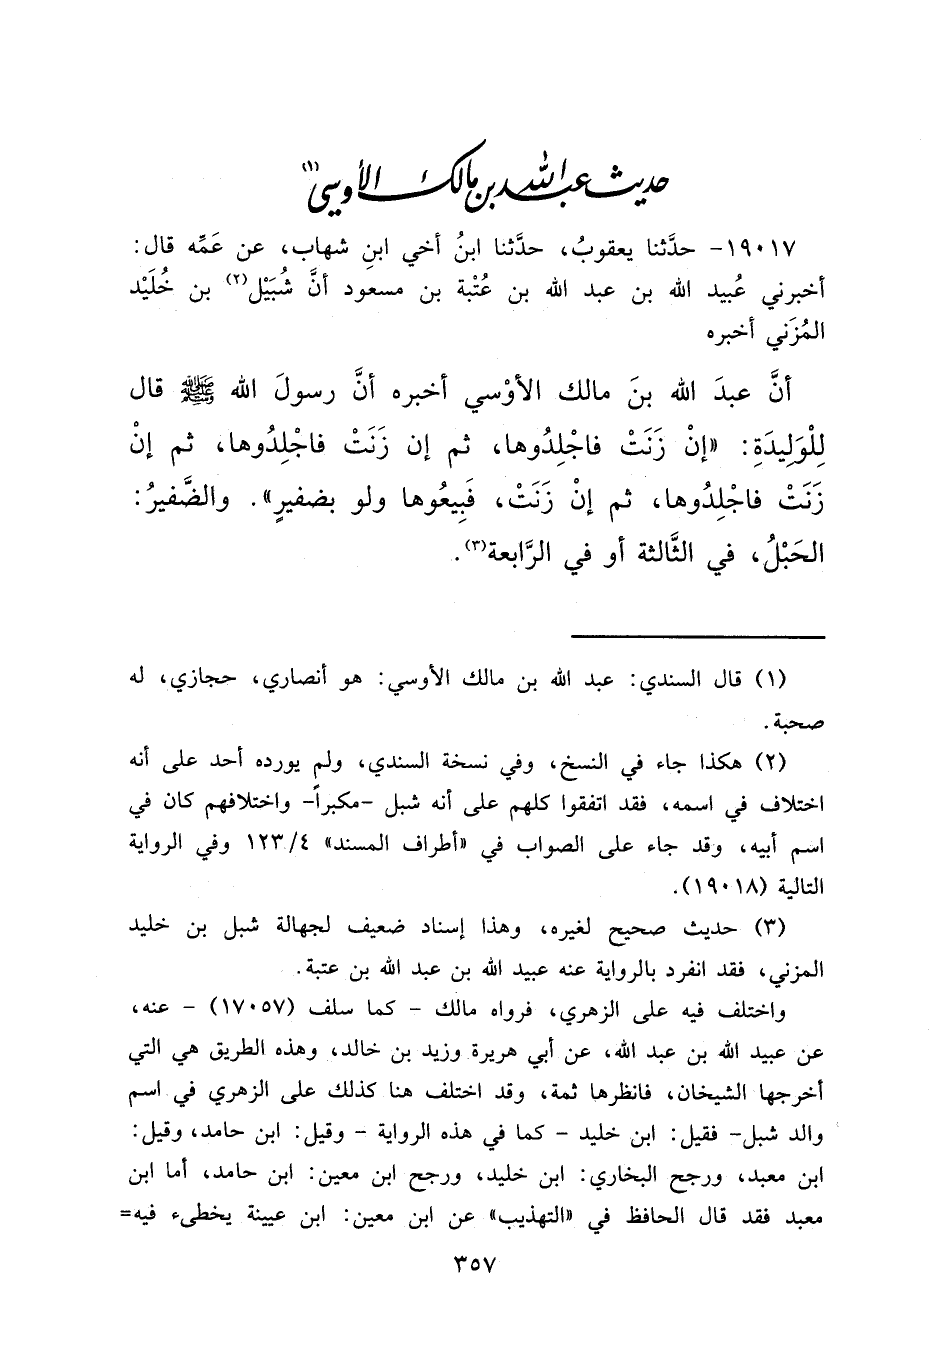 حديث عبد الله بن مالك الأوسي(١)
١٩٠١٧- حدَّثنا يعقوبُ، حدَّثنا ابنُ أخي ابنِ شهاب، عن عَمِّه قال:
أخبرني عُبيد الله بن عبد الله بن عُتْبة بن مسعود أنَّ شُبَيْل(٢) بن خُلَيْد
المُزَني أخبره
أنَّ عبدَ الله بنَ مالك الأوْسي أخبره أنَّ رسولَ الله ﷺ قال
لِلْوَلِيدَةِ: «إنْ زَنَتْ فاجْلِدُوها، ثم إن زَنَتْ فاجْلِدُوها، ثم إنْ
زَنَتْ فاجْلِدُوها، ثم إنْ زَنَتْ، فَبِيعُوها ولو بضفيرٍ». والضَّفيرُ:
الحَبْلُ، في الثَّالثة أو في الرَّابعة(٣).
(١) قال السندي: عبد الله بن مالك الأوسي: هو أنصاري، حجازي، له
صحبة.
(٢) هكذا جاء في النسخ، وفي نسخة السندي، ولم يورده أحد على أنه
اختلاف في اسمه، فقد اتفقوا كلهم على أنه شبل -مكبراً- واختلافهم كان في
اسم أبيه، وقد جاء على الصواب في «أطراف المسند» ١٢٣/٤ وفي الرواية
التالية (١٩٠١٨).
(٣) حديث صحيح لغيره، وهذا إسناد ضعيف لجهالة شبل بن خليد
المزني، فقد انفرد بالرواية عنه عبيد الله بن عبد الله بن عتبة.
واختلف فيه على الزهري، فرواه مالك - كما سلف (١٧٠٥٧) - عنه،
عن عبيد الله بن عبد الله، عن أبي هريرة وزيد بن خالد، وهذه الطريق هي التي
أخرجها الشيخان، فانظرها ثمة، وقد اختلف هنا كذلك على الزهري في اسم
والد شبل- فقيل: ابن خليد - كما في هذه الرواية - وقيل: ابن حامد، وقيل:
ابن معبد، ورجح البخاري: ابن خليد، ورجح ابن معين: ابن حامد، أما ابن
معبد فقد قال الحافظ في «التهذيب» عن ابن معين: ابن عيينة يخطىء فيه=
٣٥٧